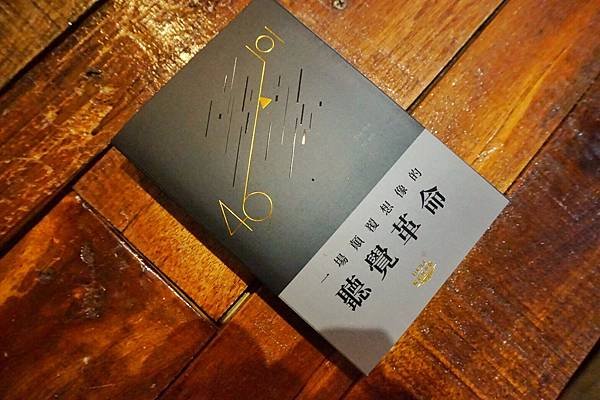 101
46
一場顛覆想像的
聽覺革命